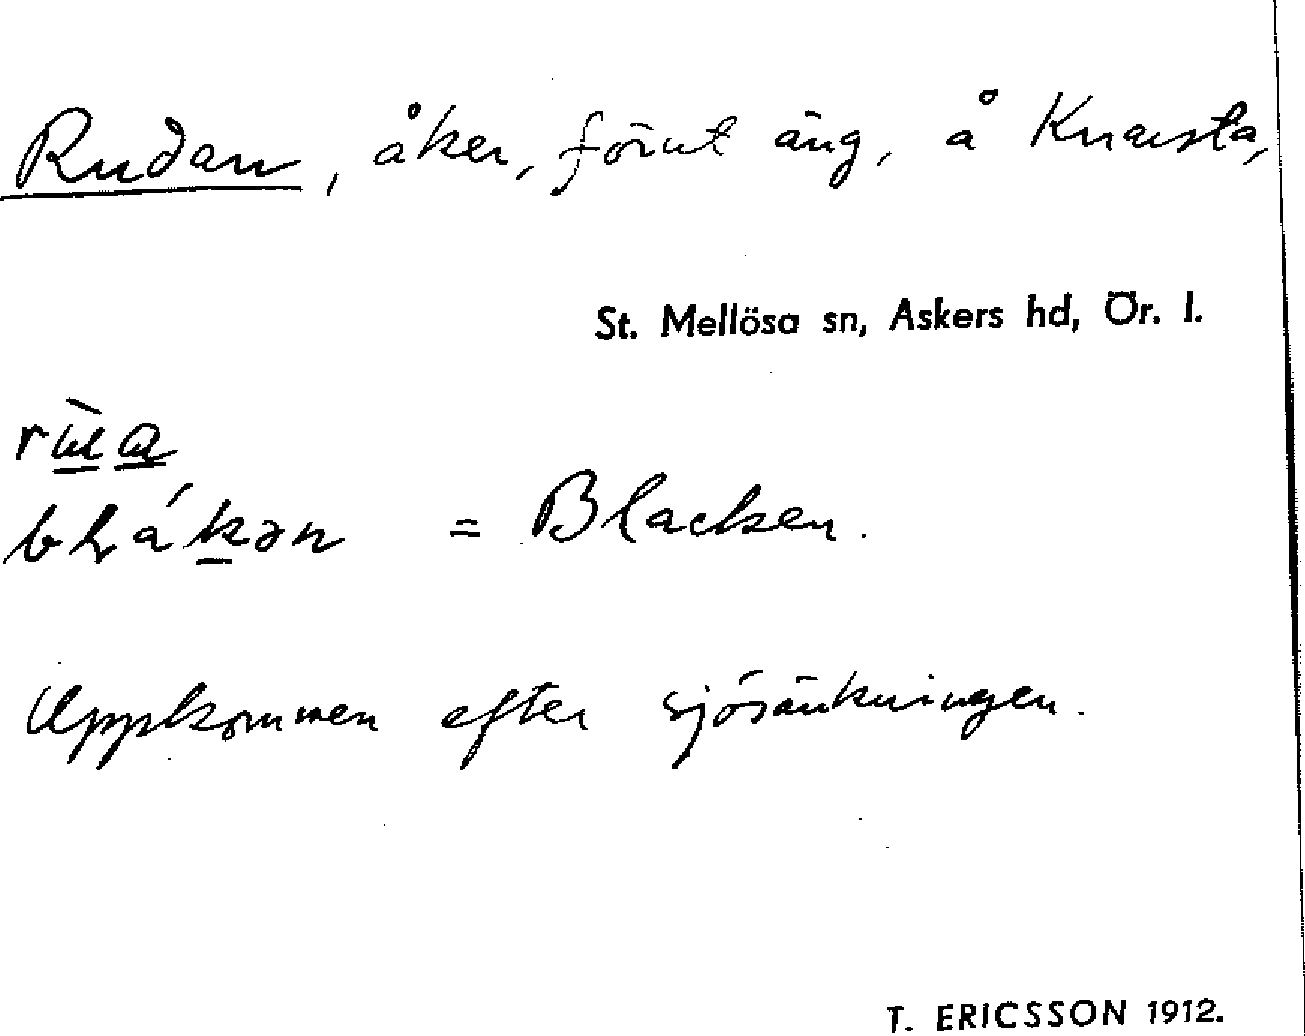 Rudan, åker, förut äng, å Knasta,
St. Mellösa sn, Askers hd, Ör. l.
= Blacken.
Uppkommen efter sjösänkningen.
T. ERICSSON 1912.